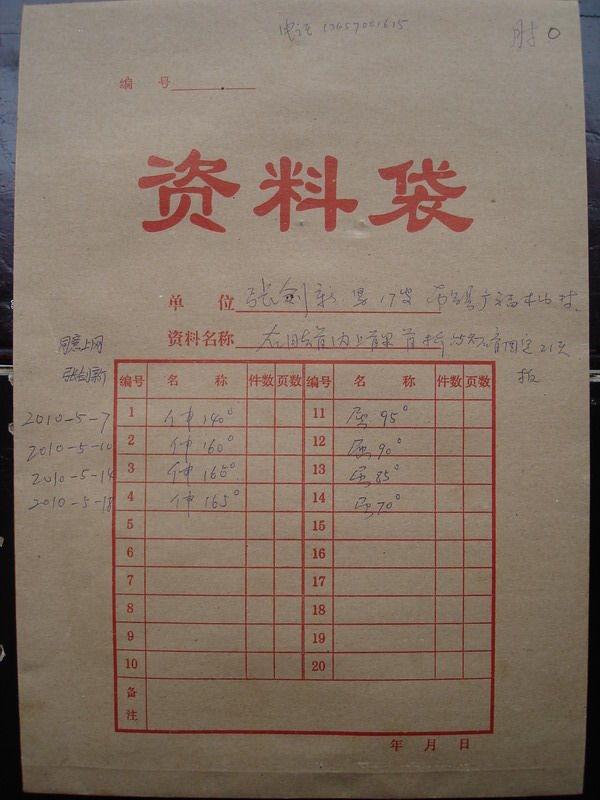 电话
肘 0
编 号
资料袋
单 位 张剑新 男 17岁
资料名称 右肱骨内上髁骨折 固定21天
同意上网
张剑新
拆
编号 名 称 件数 页数 编号 名 称 件数 页数
2010-5-7 1 伸140° 11 屈95°
2010-5-10 2 伸160° 12 屈90°
2010-5-14 3 伸165° 13 屈85°
2010-5-18 4 伸165° 14 屈70°
5 15
6 16
7 17
8 18
9 19
10 20
备注
年 月 日